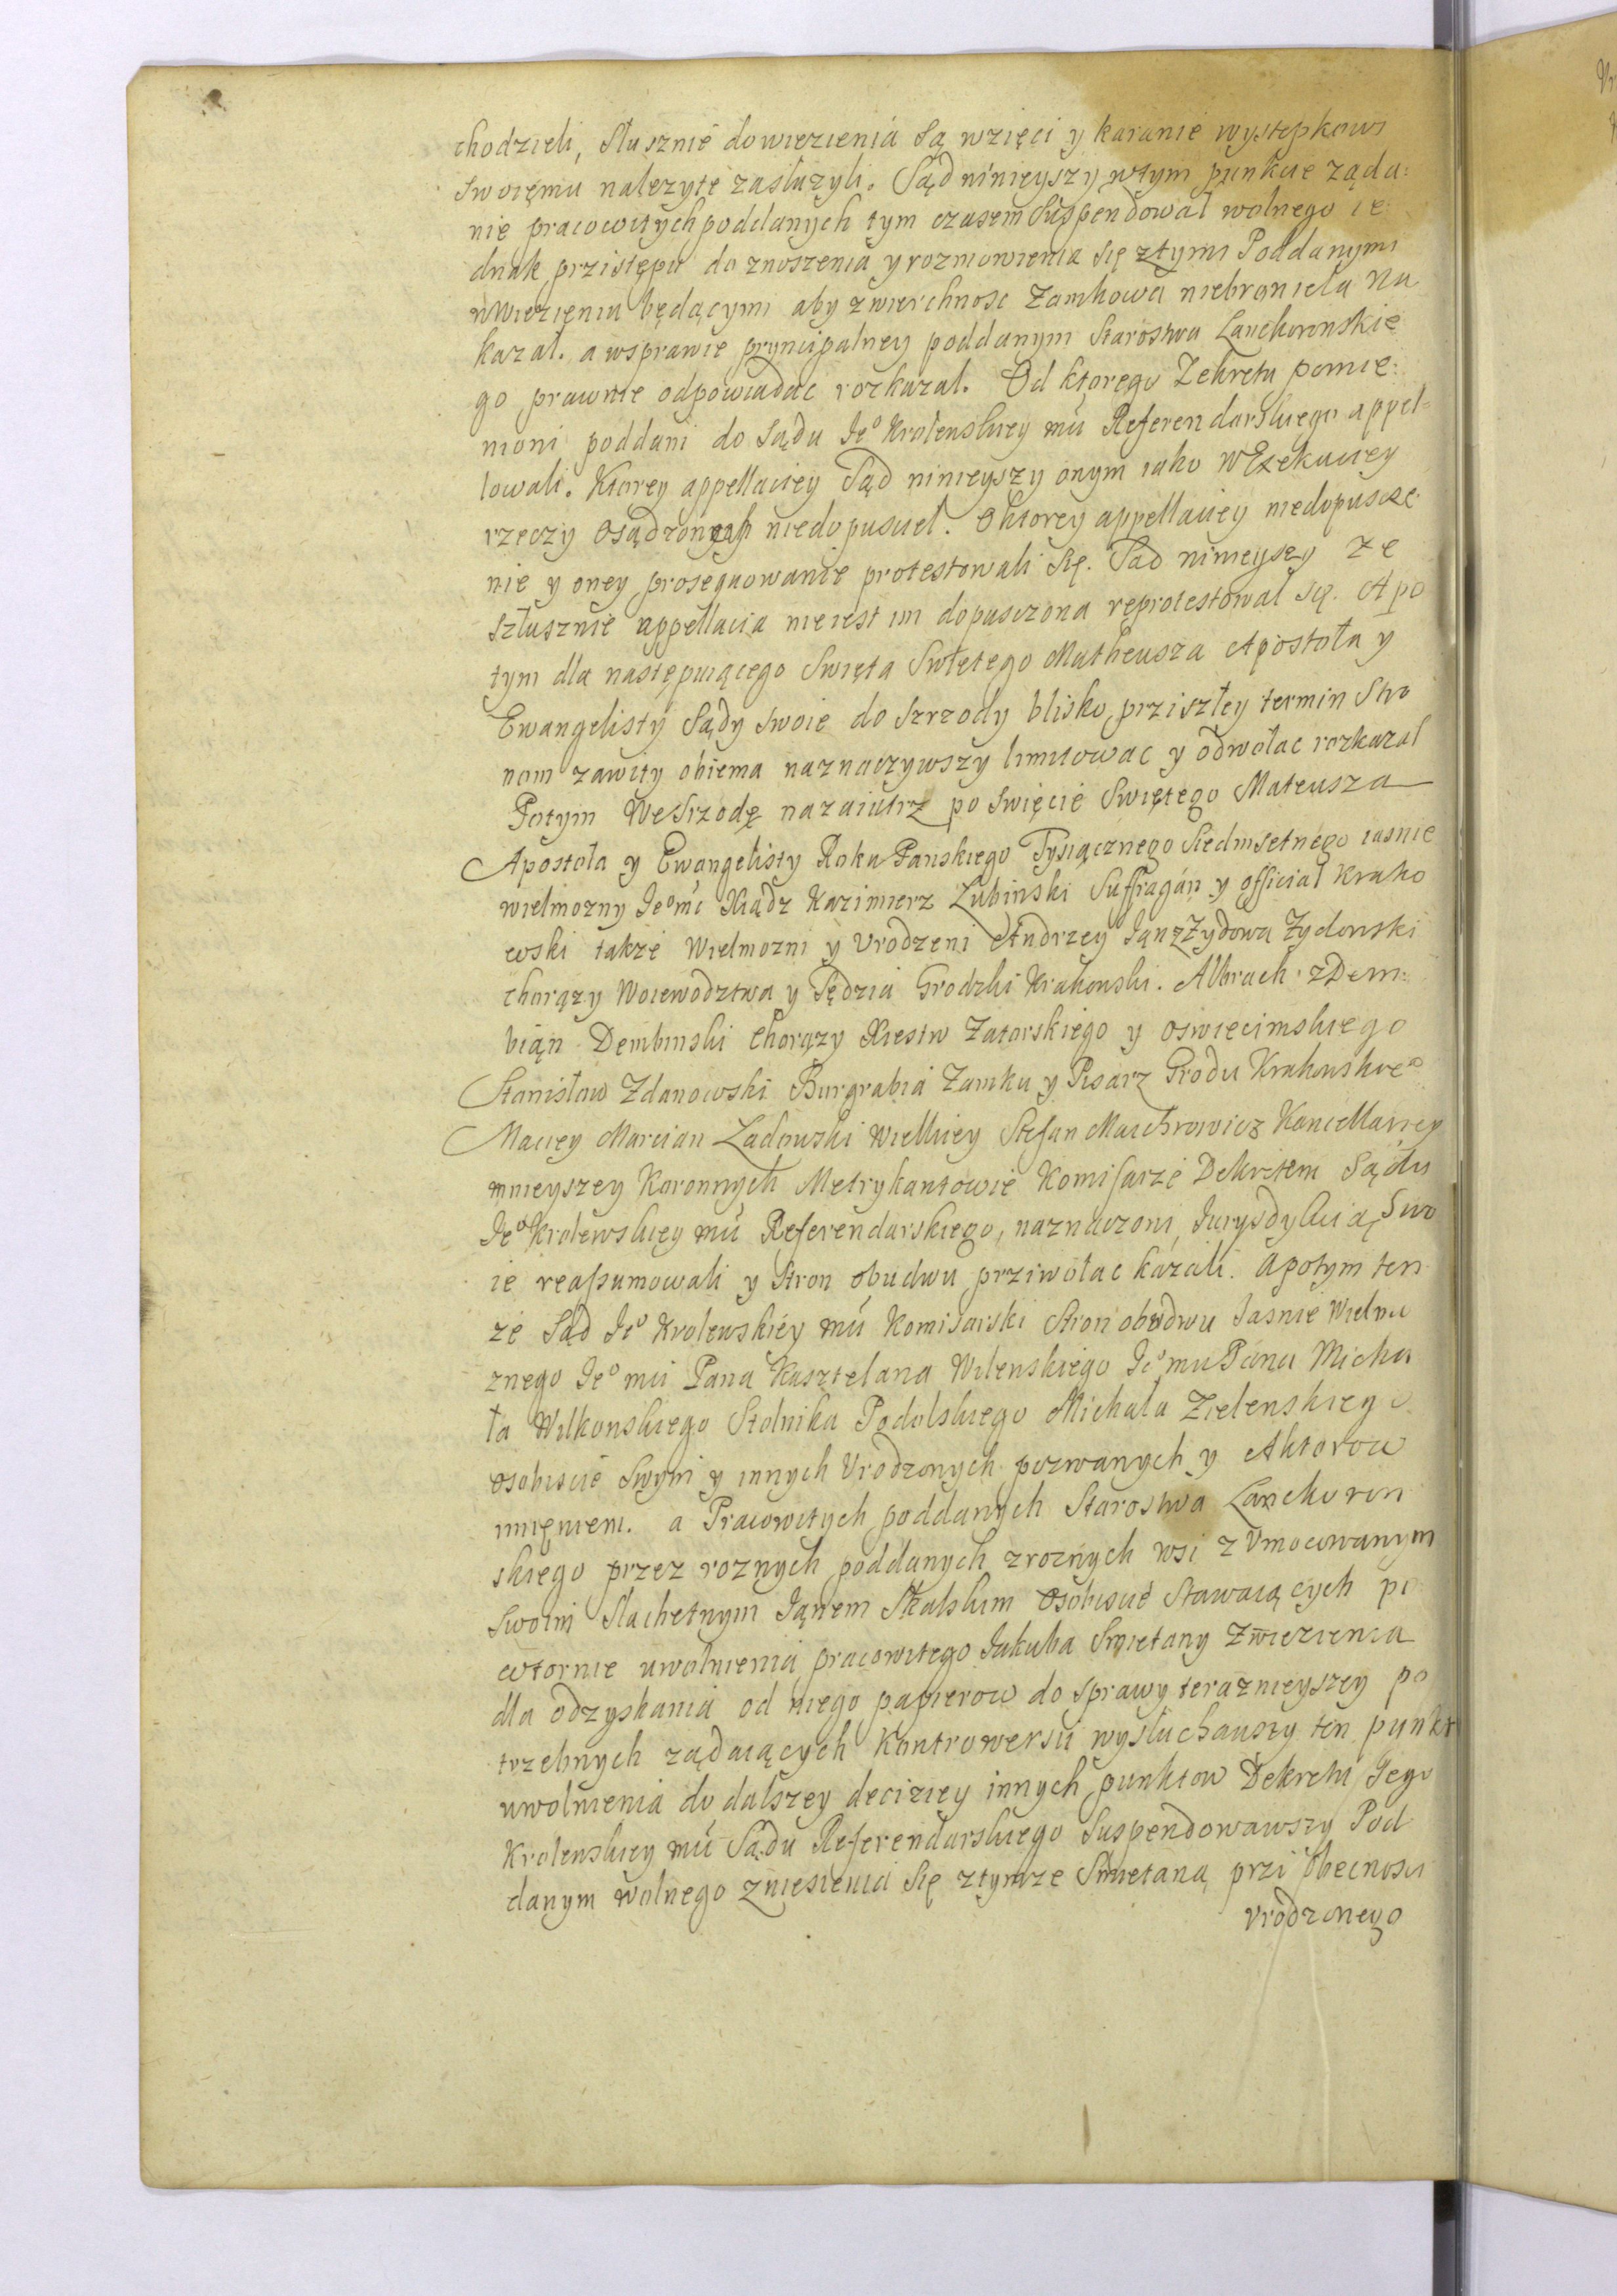 chodzieli, Słusznie dowiezienia są wzięci y karanie występkowi
swoięmu nalezyte zasłuzyli. Sąd ninieyszy wtym punkcie ząda:
nie pracowitych poddanych tym czasem Suspendował wolnego ie
dnak przistępu do znoszenia y rozmowienia się ztymi Poddanymi
wWiezięniu będącymi aby zwierchnosc Zamkowa niebroniela Na
kazał. a wsprawie pryncipalney poddanym Starostwa Lanckoronskie
go prawnie odpowiadac rozkazał. Od ktorego Dekretu pomie:
nioni poddani do Sądu Ieº Krolewskiey mći Referendarskiego appel=
lowali. Ktorey appellaciey Sąd ninieyszy onym iako wExekuciey
rzeczy osądzonych niedopusciel. Oktorey appellaciey niedopuscze
nie y oney prosequowanie protestowali się. Sąd ninieyszy ze
szłusznie appellacia nie iest im dopusczona reprotestował się. A po
tym dla następuiącego Swięta Swiętego Matheusza Apostoła y
Ewangelisty Sądy swoie do Szrzody blisko prziszłey termin Stro
nom zawity obiema naznaczywszy limitowac y odwołac rozkazał
Potym WeSrzodę nazaiutrz po Swięcie Swiętego Mateusza
Apostoła y Ewangelisty Roku Pańskiego Tysiącznego Siedmsetnego iasnie
wielmozny Ieºmć Xiądz Kazimierz Łubinski Suffragán y official Krako
wski takze Wielmozni y Vrodzeni Andrzey Ian zZydowa Zydowski
Chorązy Woiewodztwa y Sędzia Grodzki Krakowski. Albracht zDem:
bian Dembinski Chorązy Xiestw Zatorskiego y oswięcimskiego
Stanisław Zdanowski Burgrabia Zamku y Pisarz Grodu Krakowskieº
Maciey Marcian Ladowski Wielkiey Stefan Maichrowicz Kancellariey
mnieyszey Koronnych Metrykantowie Komisarze Dekretem Sądu
Ieº Krolewskiey mći Referendarskiego, naznaczoni, Iurysdykcią Swo
ie reassumowali y Stron obudwu przywołac kazali. a potym ten
ze Sąd Ieº Krolewskiey mći Komisarski Stron obudwu Iasnie Wielmo
znego Ieº mći Pana Kasztelana Wilenskiego Ieº mći Pana Micha
ła Wilkonskiego Stolnika Podolskiego Michała Zielenskiego
osobiscie Swym y innych Vrodzonych pozwanych y Aktorow
imięniem. a Pracowitych poddanych Starostwa Lanckoron
skiego przez roznych poddanych zroznych wsi z Vmocowanym
Swoim Slachetnym Iąnem Skalskim osobiscie Stawaiących po
wtornie uwolnienia pracowitego Iakuba Smietany zwiezienia
dla odzyskania od niego papierow do sprawy teraznieyszey po
trzebnych ządaiących Kontrowersii wysłuchawszy ten punkt
uwolnienia do dalszey deciziey innych punktow Dekretu Iego
Krolewskiey mći Sądu Referendarskiego Suspendowawszy Pod
danym wolnego zniesienia się ztymze Smietaną przi obecnosci
Vrodzonego